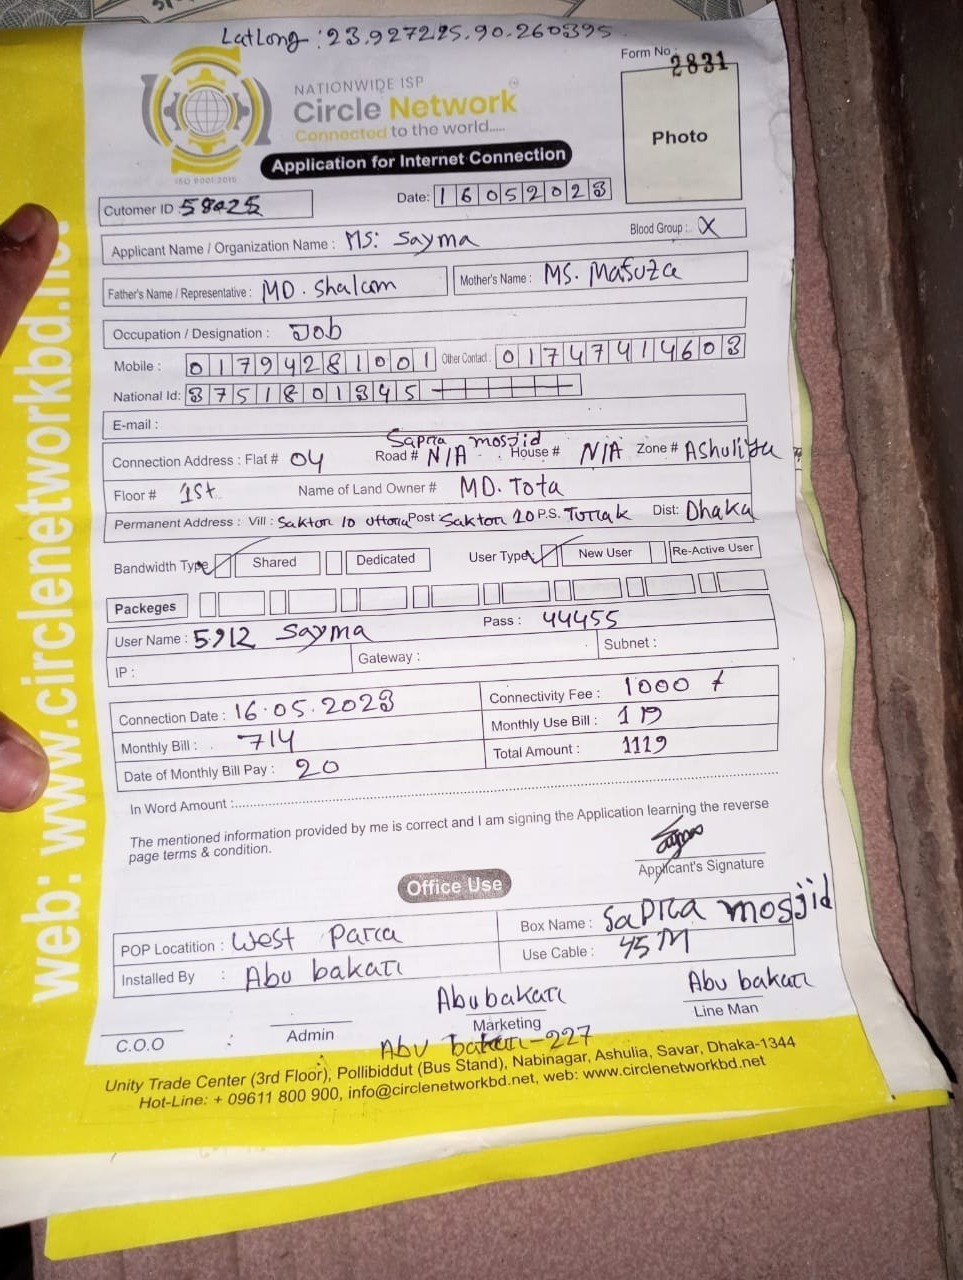 LatLong : 23.927225.90.260395
Form No : 2831
NATIONWIDE ISP
Circle Network
Connected to the world.....
ISO 9001:2015
Photo
Application for Internet Connection
Cutomer ID 58425 Date: 16052023
Applicant Name / Organization Name : MS: Sayma Blood Group : X
Father's Name / Representative : MD. Shalam Mother's Name : MS. Mafuza
Occupation / Designation : Job
Mobile : 01794281001 Other Contact : 01747414603
National Id: 3751801345
E-mail :
Sapra mosjid
Connection Address : Flat # 04 Road # N/A House # N/A Zone # Ashuliya
Floor # 1st Name of Land Owner # MD. Tota
Permanent Address : Vill : Post : P.S. Turak Dist: Dhaka
Bandwidth Type Shared Dedicated User Type New User Re-Active User
Packeges
User Name : 5912 Sayma Pass : 44455
IP : Gateway : Subnet :
Connection Date : 16.05.2023 Connectivity Fee : 1000
Monthly Bill : 714 Monthly Use Bill : 119
Date of Monthly Bill Pay : 20 Total Amount : 1119
In Word Amount :
The mentioned information provided by me is correct and I am signing the Application learning the reverse
page terms & condition.
Applicant's Signature
Office Use
POP Locatition : West Para Box Name : Sapra mosjid
Installed By : Abu bakar Use Cable : 45M
Abu bakar Abu bakar
C.O.O : Admin Marketing Line Man
Abu bakar-227
Unity Trade Center (3rd Floor), Pollibiddut (Bus Stand), Nabinagar, Ashulia, Savar, Dhaka-1344
Hot-Line: + 09611 800 900, info@circlenetworkbd.net, web: www.circlenetworkbd.net
web: www.circlenetworkbd.net